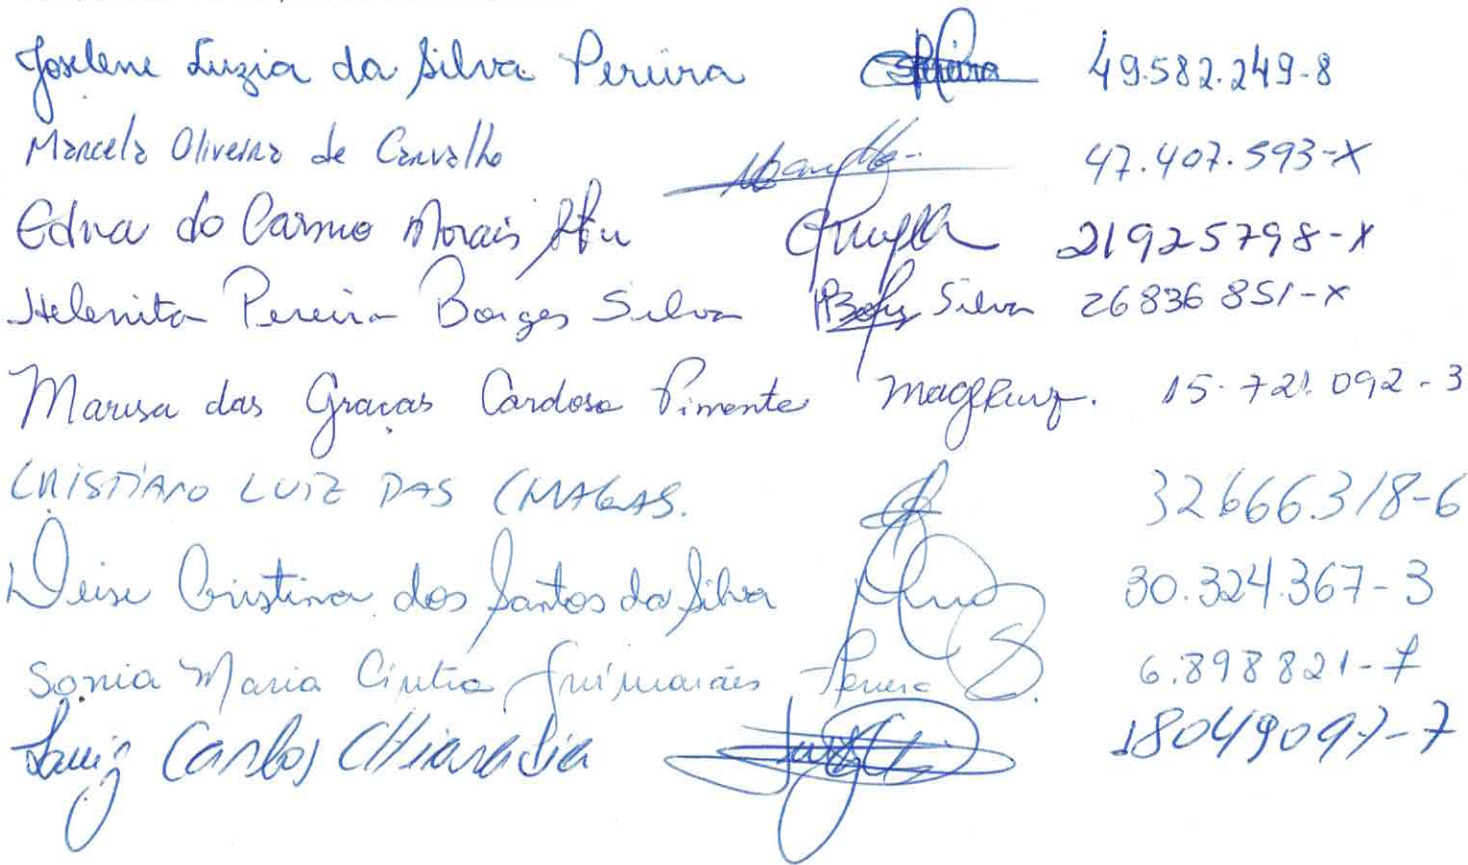 Joselene Luzia da Silva Pereira Pereira 49.582.249-8
Marcela Oliveira de Carvalho 47.407.593-X
Edna do Carmo Morais 21925798-X
Helenita Pereira Borges Silva Silva 26836851-X
Marisa das Graças Cardoso Pimenta 15.721.092-3
CRISTIANO LUIZ DAS CHAGAS. 32666.318-6
Deise Cristina dos Santos da Silva 30.324.367-3
Sonia Maria Cintra Guimarães 6.898821-7
Luiz Carlos Chiaradia 18049097-7